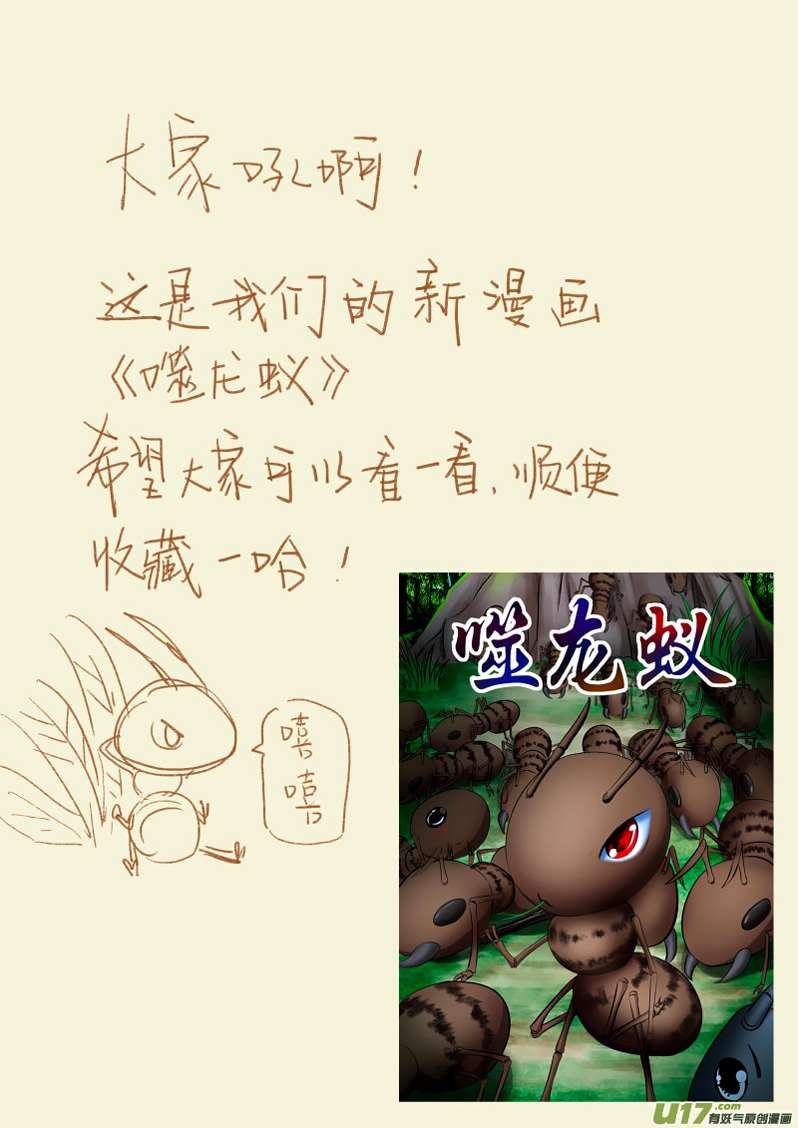 大家吼啊！
这是我们的新漫画
《噬龙蚁》
希望大家可以看一看，顺便
收藏一哈！
嘻嘻
噬龙蚁
U17.com
有妖气原创漫画